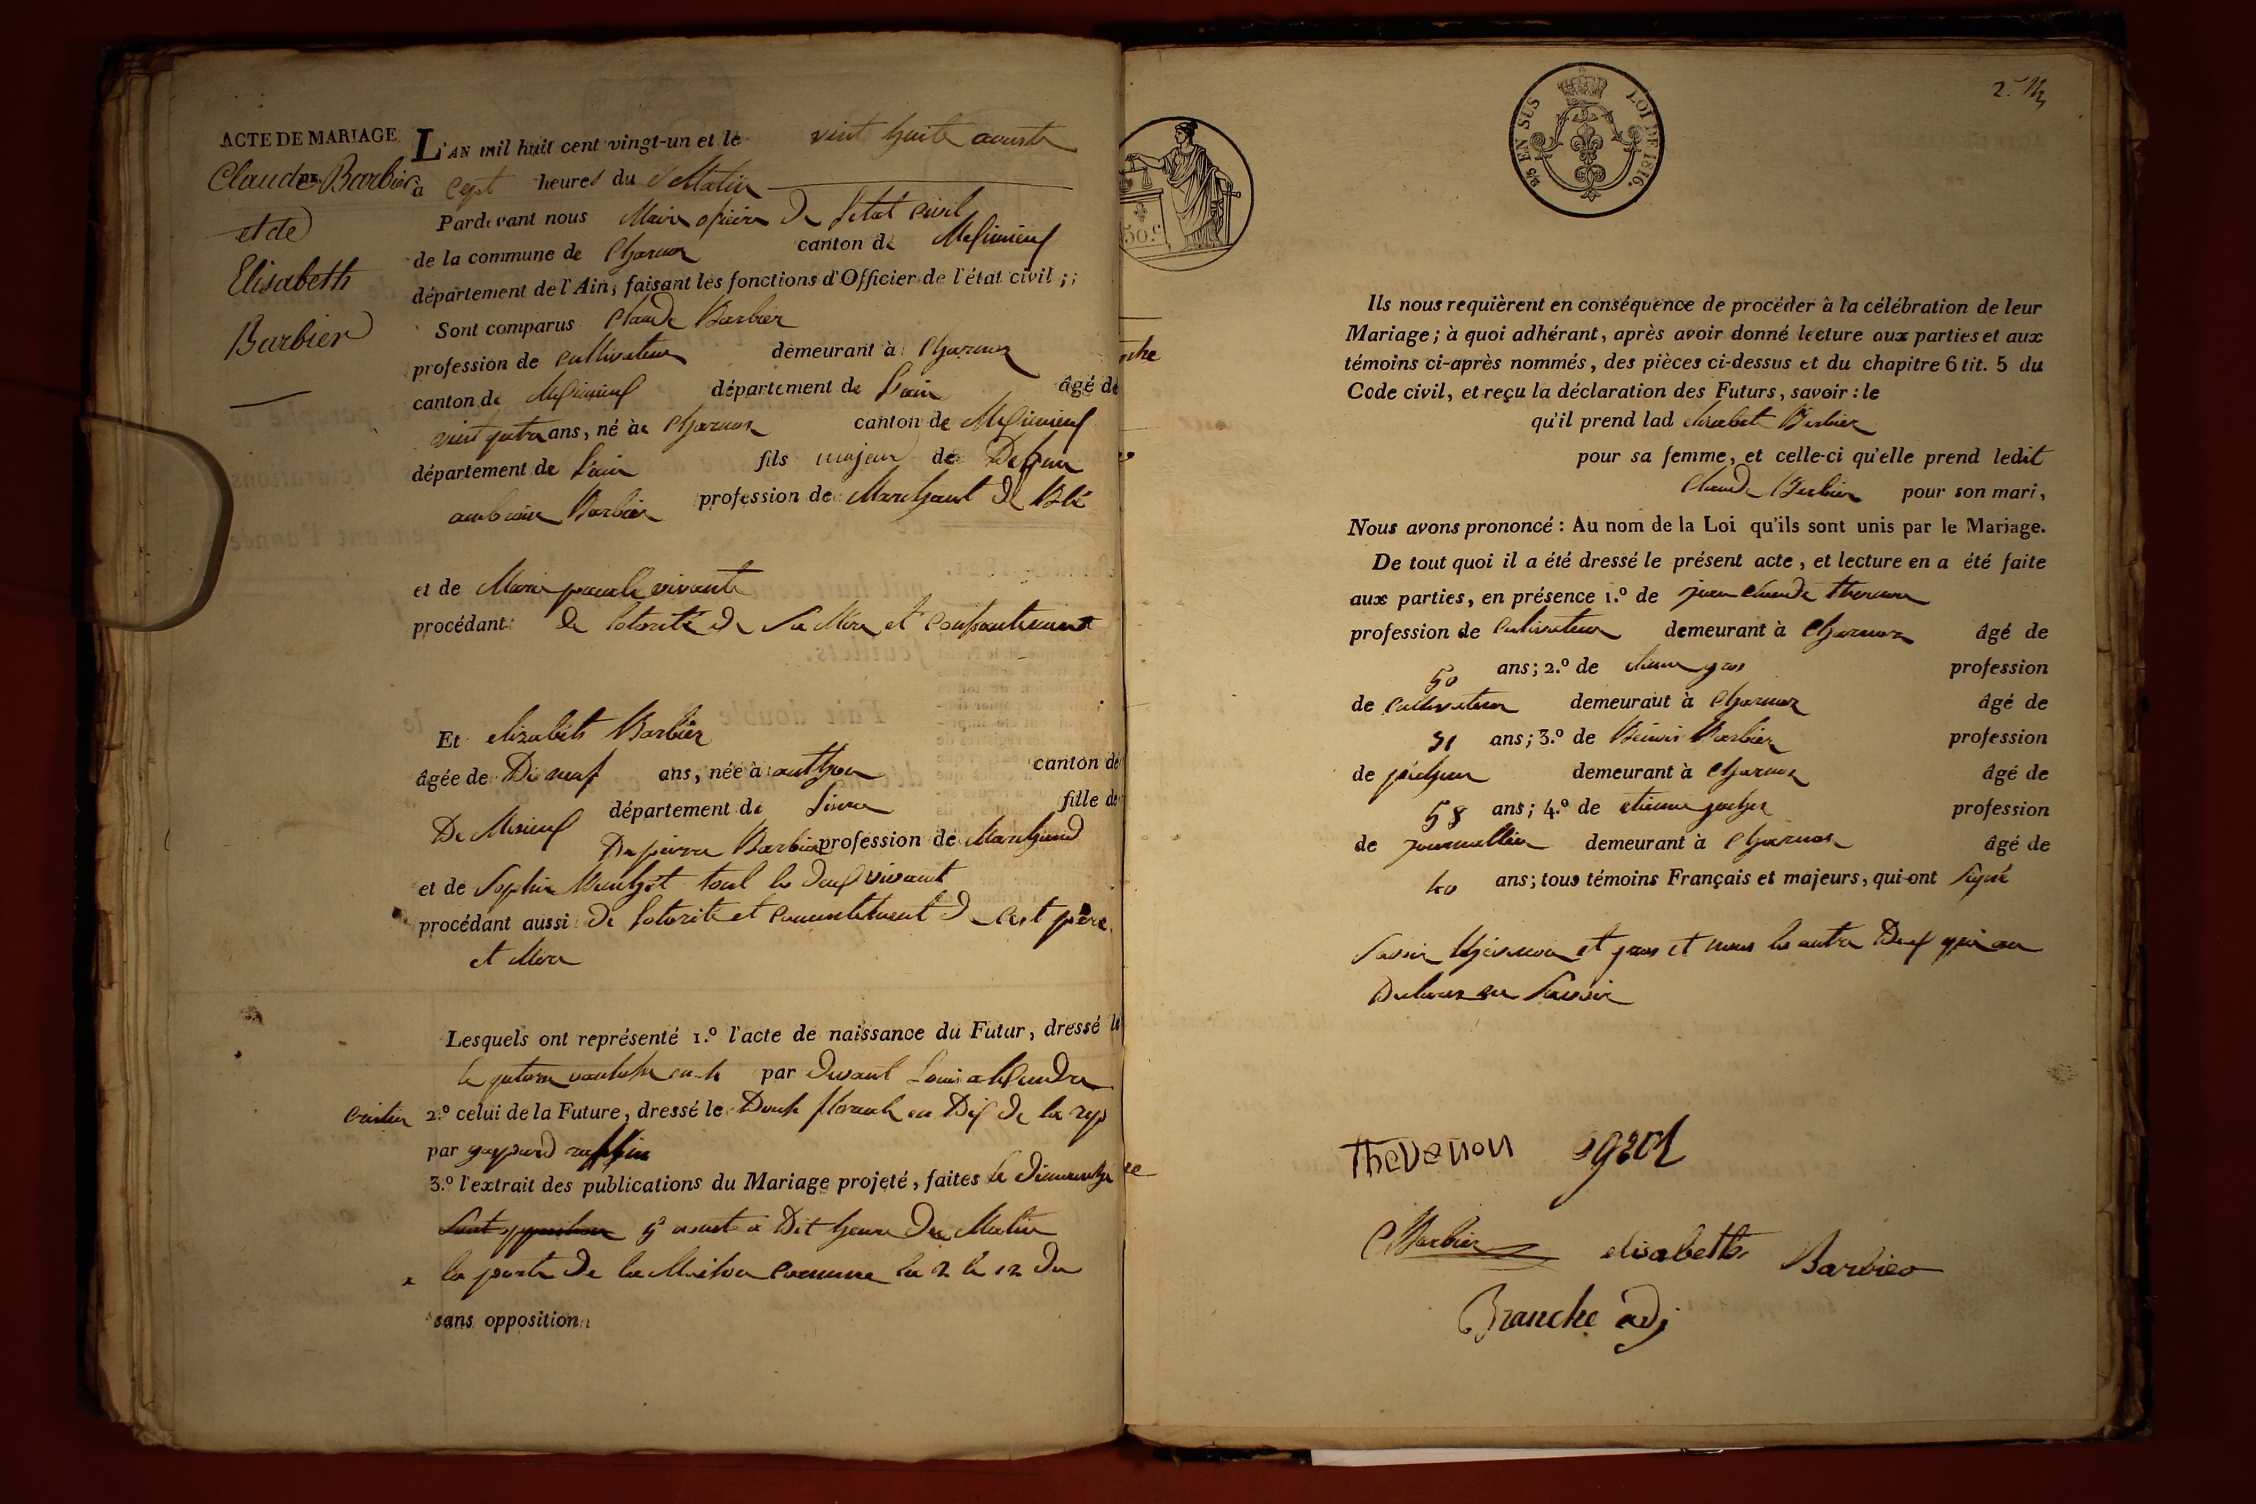 ACTE DE MARIAGE
Claude Barbier
et de
Elisabeth
Barbier
L'AN mil huit cent vingt-un et le vint huite aouste
a sept heures du Matin
Pardevant nous Maire de letat civil
de la commune de Charnoz canton de Meximieux
département de l'Ain, faisant les fonctions d'Officier de l'état civil ;
Sont comparus Claude Barbier
profession de cultivateur demeurant à Charnoz
canton de Meximieux département de Lain âgé de
vint quatre ans, né à Charnoz canton de Meximieux
département de Lain fils majeur de Defun
ambroise Barbier profession de Marchant de Blé
et de Marie vivante
procédant de lotorité de sa Mere et
Et elizabeth Barbier
âgée de Dineuf ans, née à anthon canton de
De Mesieux département de Lisere fille de
De pierre Barbier profession de Marchand
et de Sophie tout les deux vivant
procédant aussi de lotorite et de cest père
et Mere
Lesques ont représenté 1.º l'acte de naissance du Futur, dressé le
par Louis alexandre
2.º celui de la Future, dressé le Douse floreale en Dix de la rep
par gaspard ruffin
3.º l'extrait des publications du Mariage projeté, faites le dimanche
5 aoust a Dit heure du Matin
la porte de la Maison commune le 12 du
sans opposition
25 EN SUS LOI DE 1816.
50.c
Ils nous requièrent en conséquence de procéder à la célébration de leur
Mariage ; à quoi adhérant, après avoir donné lecture aux parties et aux
témoins ci-après nommés, des pièces ci-dessus et du chapitre 6 tit. 5 du
Code civil, et reçu la déclaration des Futurs, savoir : le
qu'il prend lad elizabet Barbier
pour sa femme, et celle-ci qu'elle prend ledit
Claude Barbier pour son mari,
Nous avons prononcé : Au nom de la Loi qu'ils sont unis par le Mariage.
De tout quoi il a été dressé le présent acte, et lecture en a été faite
aux parties, en présence 1.º de jean Claude
profession de cultivateur demeurant à Charnoz âgé de
50 ans ; 2.º de gros profession
de cultivateur demeurant à Charnoz âgé de
31 ans ; 3.º de Benoit Barbier profession
de pécheur demeurant à Charnoz âgé de
58 ans ; 4.º de etienne profession
de journallier demeurant à Charnoz âgé de
40 ans ; tous témoins Français et majeurs, qui ont signé
et gros et nous les autre Deux
Thevenon gros
C Barbier elisabeth Barbier
Branche adj